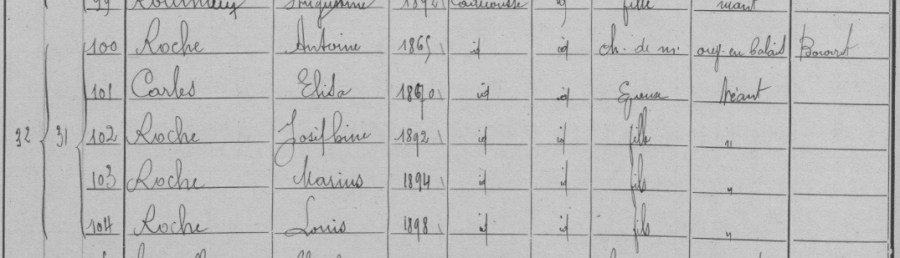 99 1892 Caderousse id fille néant
100 Roche Antoine 1865 id id ch. de m. ouv. en balais
101 Carles Elisa 1870 id id Néant
32 31 102 Roche Joséphine 1892 id id fille "
103 Roche Marius 1894 id id fils "
104 Roche Louis 1898 id id fils "